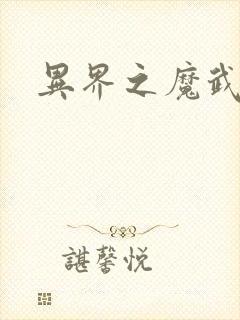 異界之魔武
諶馨悦